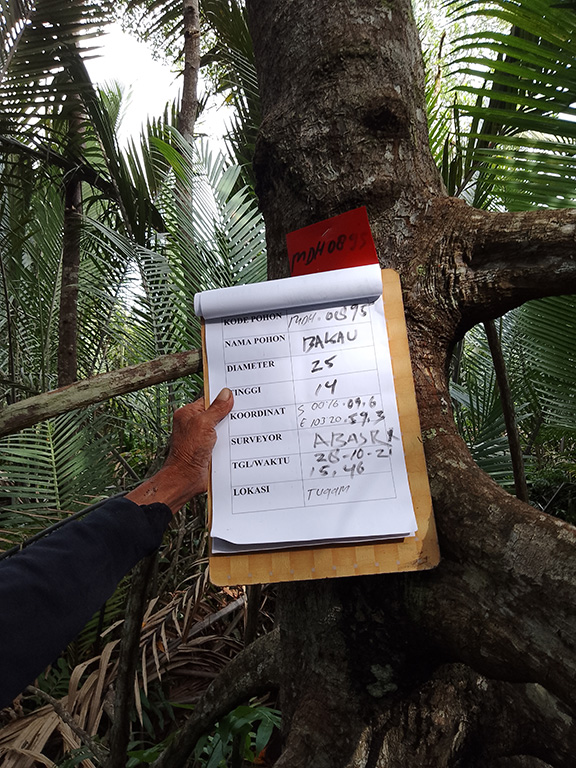 MDH 0895
KODE POHON MDH. 0895
NAMA POHON BAKAU
DIAMETER 25
TINGGI 14
KOORDINAT S 0076.09.6
E 10320.59.3
SURVEYOR ABASRI
TGL/WAKTU 28-10-21
15.46
LOKASI TUGAM